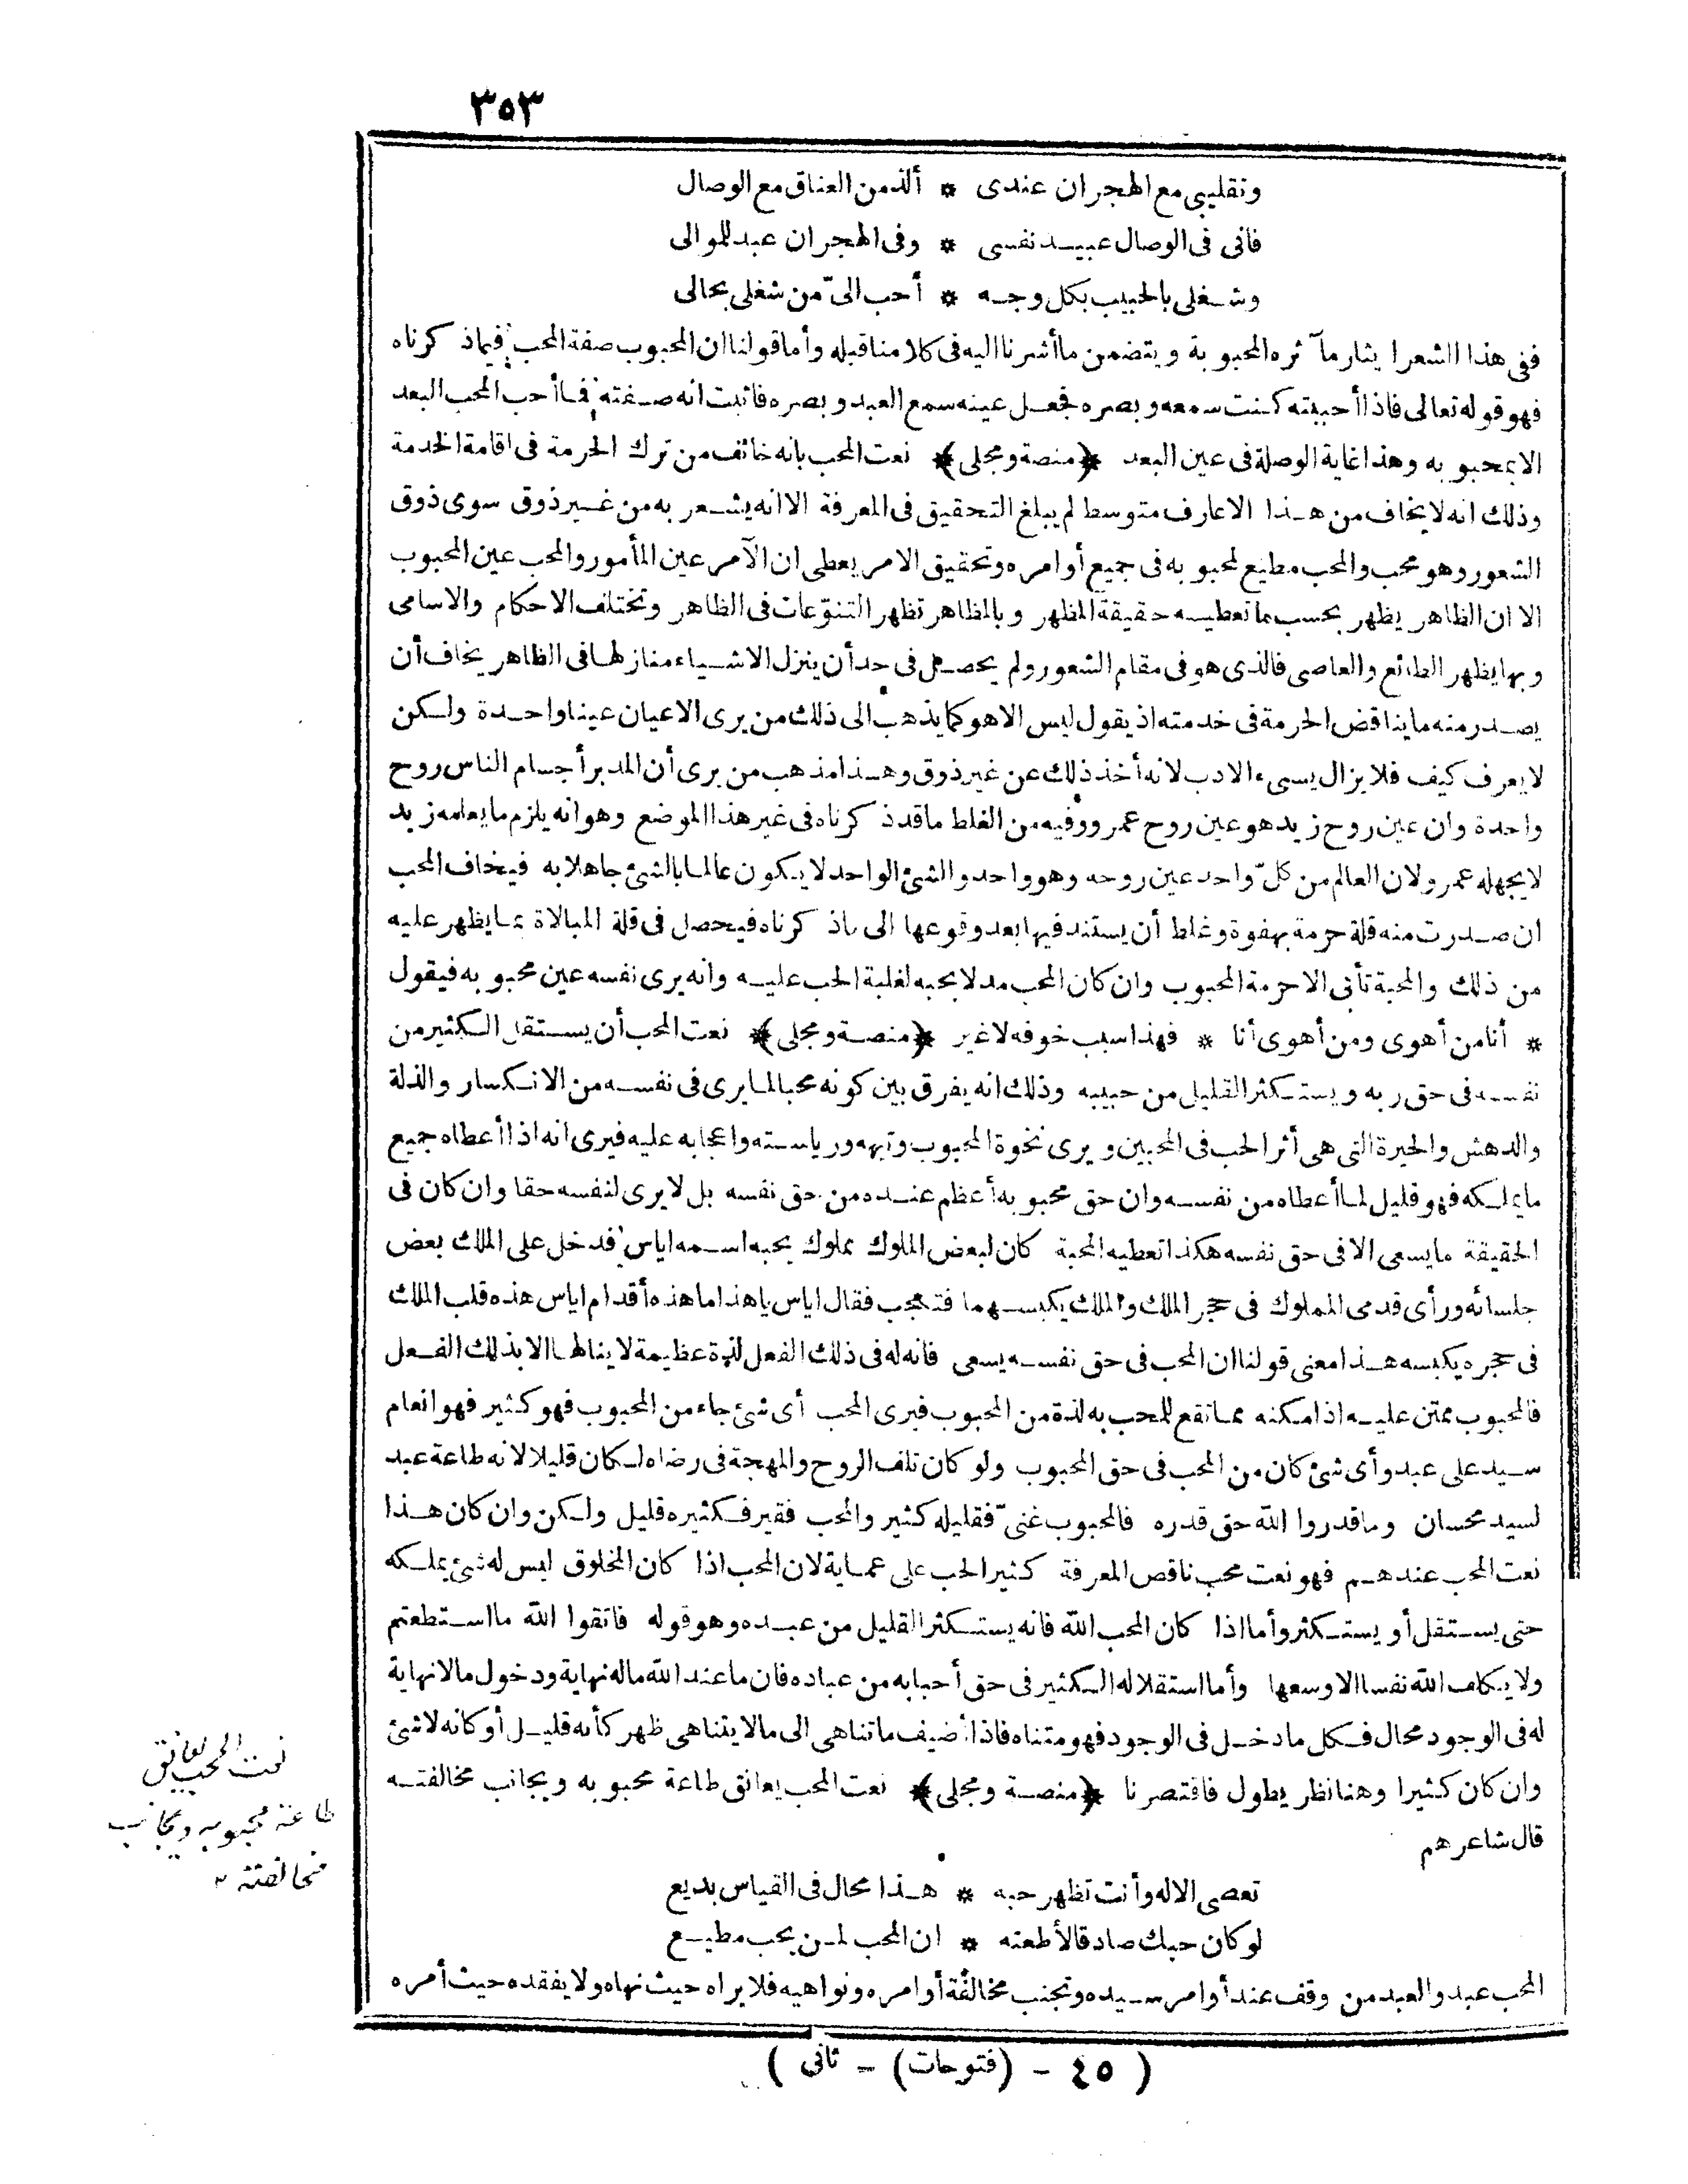 ٣٥٣
وتقليبي مع الهجران عندى * ألذ من العناق مع الوصال
فانى فى الوصال عبيد نفسى * وفى الهجران عبد للموالى
وشغلى بالحبيب بكل وجه * أحب الىّ من شغلى بحالى
ففى هذا الشعر ايثار ما آثره المحبوبة ويتضمن ما أشرنا اليه فى كلامنا قبله وأما قولنا ان المحبوب صفة المحب فيماذ كرناه
فهو قوله تعالى فاذا أحببته كنت سمعه وبصره فجعل عينه سمع العبد وبصره فاثبت انه صفته فما أحب المحب البعد
الا بمحبوبه وهذا غاية الوصلة فى عين البعد ﴿منصة ومجلى﴾ نعت المحب بانه خائف من ترك الحرمة فى اقامة الخدمة
وذلك انه لا يخاف من هذا الا عارف متوسط لم يبلغ التحقيق فى المعرفة الا انه يشعر به من غير ذوق سوى ذوق
الشعور وهو محب والمحب مطيع لمحبوبه فى جميع أوامره وتحقيق الامر يعطى ان الآمر عين المأمور والمحب عين المحبوب
الا ان الظاهر يظهر بحسب ما تعطيه حقيقة المظهر وبالمظاهر تظهر التنوّعات فى الظاهر وتختلف الاحكام والاسامى
وبها يظهر الطائع والعاصى فالذى هو فى مقام الشعور ولم يحصل فى حد أن ينزل الاشياء منازلها فى الظاهر يخاف أن
يصدر منه ما يناقض الحرمة فى خدمته اذ يقول ليس الا هو كما يذهب الى ذلك من يرى الاعيان عينا واحدة ولكن
لا يعرف كيف فلا يزال يسىء الادب لانه أخذ ذلك عن غير ذوق وهذا مذهب من يرى أن المدبر أجسام الناس روح
واحدة وان عين روح زيد هو عين روح عمرو وفيه من الغلط ما قد ذ كرناه فى غير هذا الموضع وهو انه يلزم ما يعلمه زيد
لا يجهله عمرو لان العالم من كلّ واحد عين روحه وهو واحد والشئ الواحد لا يكون عالما بالشئ جاهلا به فيخاف المحب
ان صدرت منه قلة حرمة بهفوة وغلط أن يستند فيها بعد وقوعها الى ماذ كرناه فيحصل فى قلة المبالاة بما يظهر عليه
من ذلك والمحبة تأبى الا حرمة المحبوب وان كان المحب مدلا بحبه لغلبة الحب عليه وانه يرى نفسه عين محبوبه فيقول
* أنا من أهوى ومن أهوى أنا * فهذا سبب خوفه لا غير ﴿منصة ومجلى﴾ نعت المحب أن يستقل الكثير من
نفسه فى حق ربه ويستكثر القليل من حبيبه وذلك انه يفرق بين كونه محبا لما يرى فى نفسه من الانكسار والذلة
والدهش والحيرة التى هى أثر الحب فى المحبين ويرى نخوة المحبوب وتيهه ورياسته واعجابه عليه فيرى انه اذا أعطاه جميع
ما يملكه فهو قليل لما أعطاه من نفسه وان حق محبوبه أعظم عنده من حق نفسه بل لا يرى لنفسه حقا وان كان فى
الحقيقة ما يسعى الا فى حق نفسه هكذا تعطيه المحبة كان لبعض الملوك مملوك يحبه اسمه اياس فدخل على الملك بعض
جلسائه ورأى قدمى المملوك فى حجر الملك والملك يكبسهما فتعجب فقال اياس يا هذا ما هذه أقدام اياس هذه قلب الملك
فى حجره يكبسه هذا معنى قولنا ان المحب فى حق نفسه يسعى فانه له فى ذلك الفعل لذة عظيمة لا ينالها الا بذلك الفعل
فالمحبوب ممتن عليه اذ امكنه مما تقع للمحب به لذة من المحبوب فيرى المحب أى شئ جاء من المحبوب فهو كثير فهو انعام
سيد على عبد وأى شئ كان من المحب فى حق المحبوب ولو كان تلف الروح والمهجة فى رضاه لكان قليلا لانه طاعة عبد
لسيد محسان وما قدروا الله حق قدره فالمحبوب غنىّ فقليله كثير والمحب فقير فكثيره قليل ولكن وان كان هذا
نعت المحب عندهم فهو نعت محب ناقص المعرفة كثير الحب على عماية لان المحب اذا كان المخلوق ليس له شئ يملكه
حتى يستقل أو يستكثر وأما اذا كان المحب الله فانه يستكثر القليل من عبده وهو قوله فاتقوا الله ما استطعتم
ولا يكلف الله نفسا الا وسعها وأما استقلاله الكثير فى حق أحبابه من عباده فان ما عند الله ماله نهاية ودخول مالا نهاية
له فى الوجود محال فكل ما دخل فى الوجود فهو متناه فاذا أضيف ما تناهى الى مالا يتناهى ظهر كأنه قليل أو كانه لا شئ
وان كان كثيرا وهنا نظر يطول فاقتصرنا ﴿منصة ومجلى﴾ نعت المحب يعانق طاعة محبوبه ويجانب مخالفته
قال شاعرهم
تعصى الاله وأنت تظهر حبه * هذا محال فى القياس بديع
لو كان حبك صادقا لأطعته * ان المحب لمن يحب مطيع
المحب عبد والعبد من وقف عند أوامر سيده وتجنب مخالفة أوامره ونواهيه فلا يراه حيث نهاه ولا يفقده حيث أمره
نعت المحب يعانق
طاعة محبوبه ويجانب
مخالفته
( ٤٥ - (فتوحات) - ثانى )